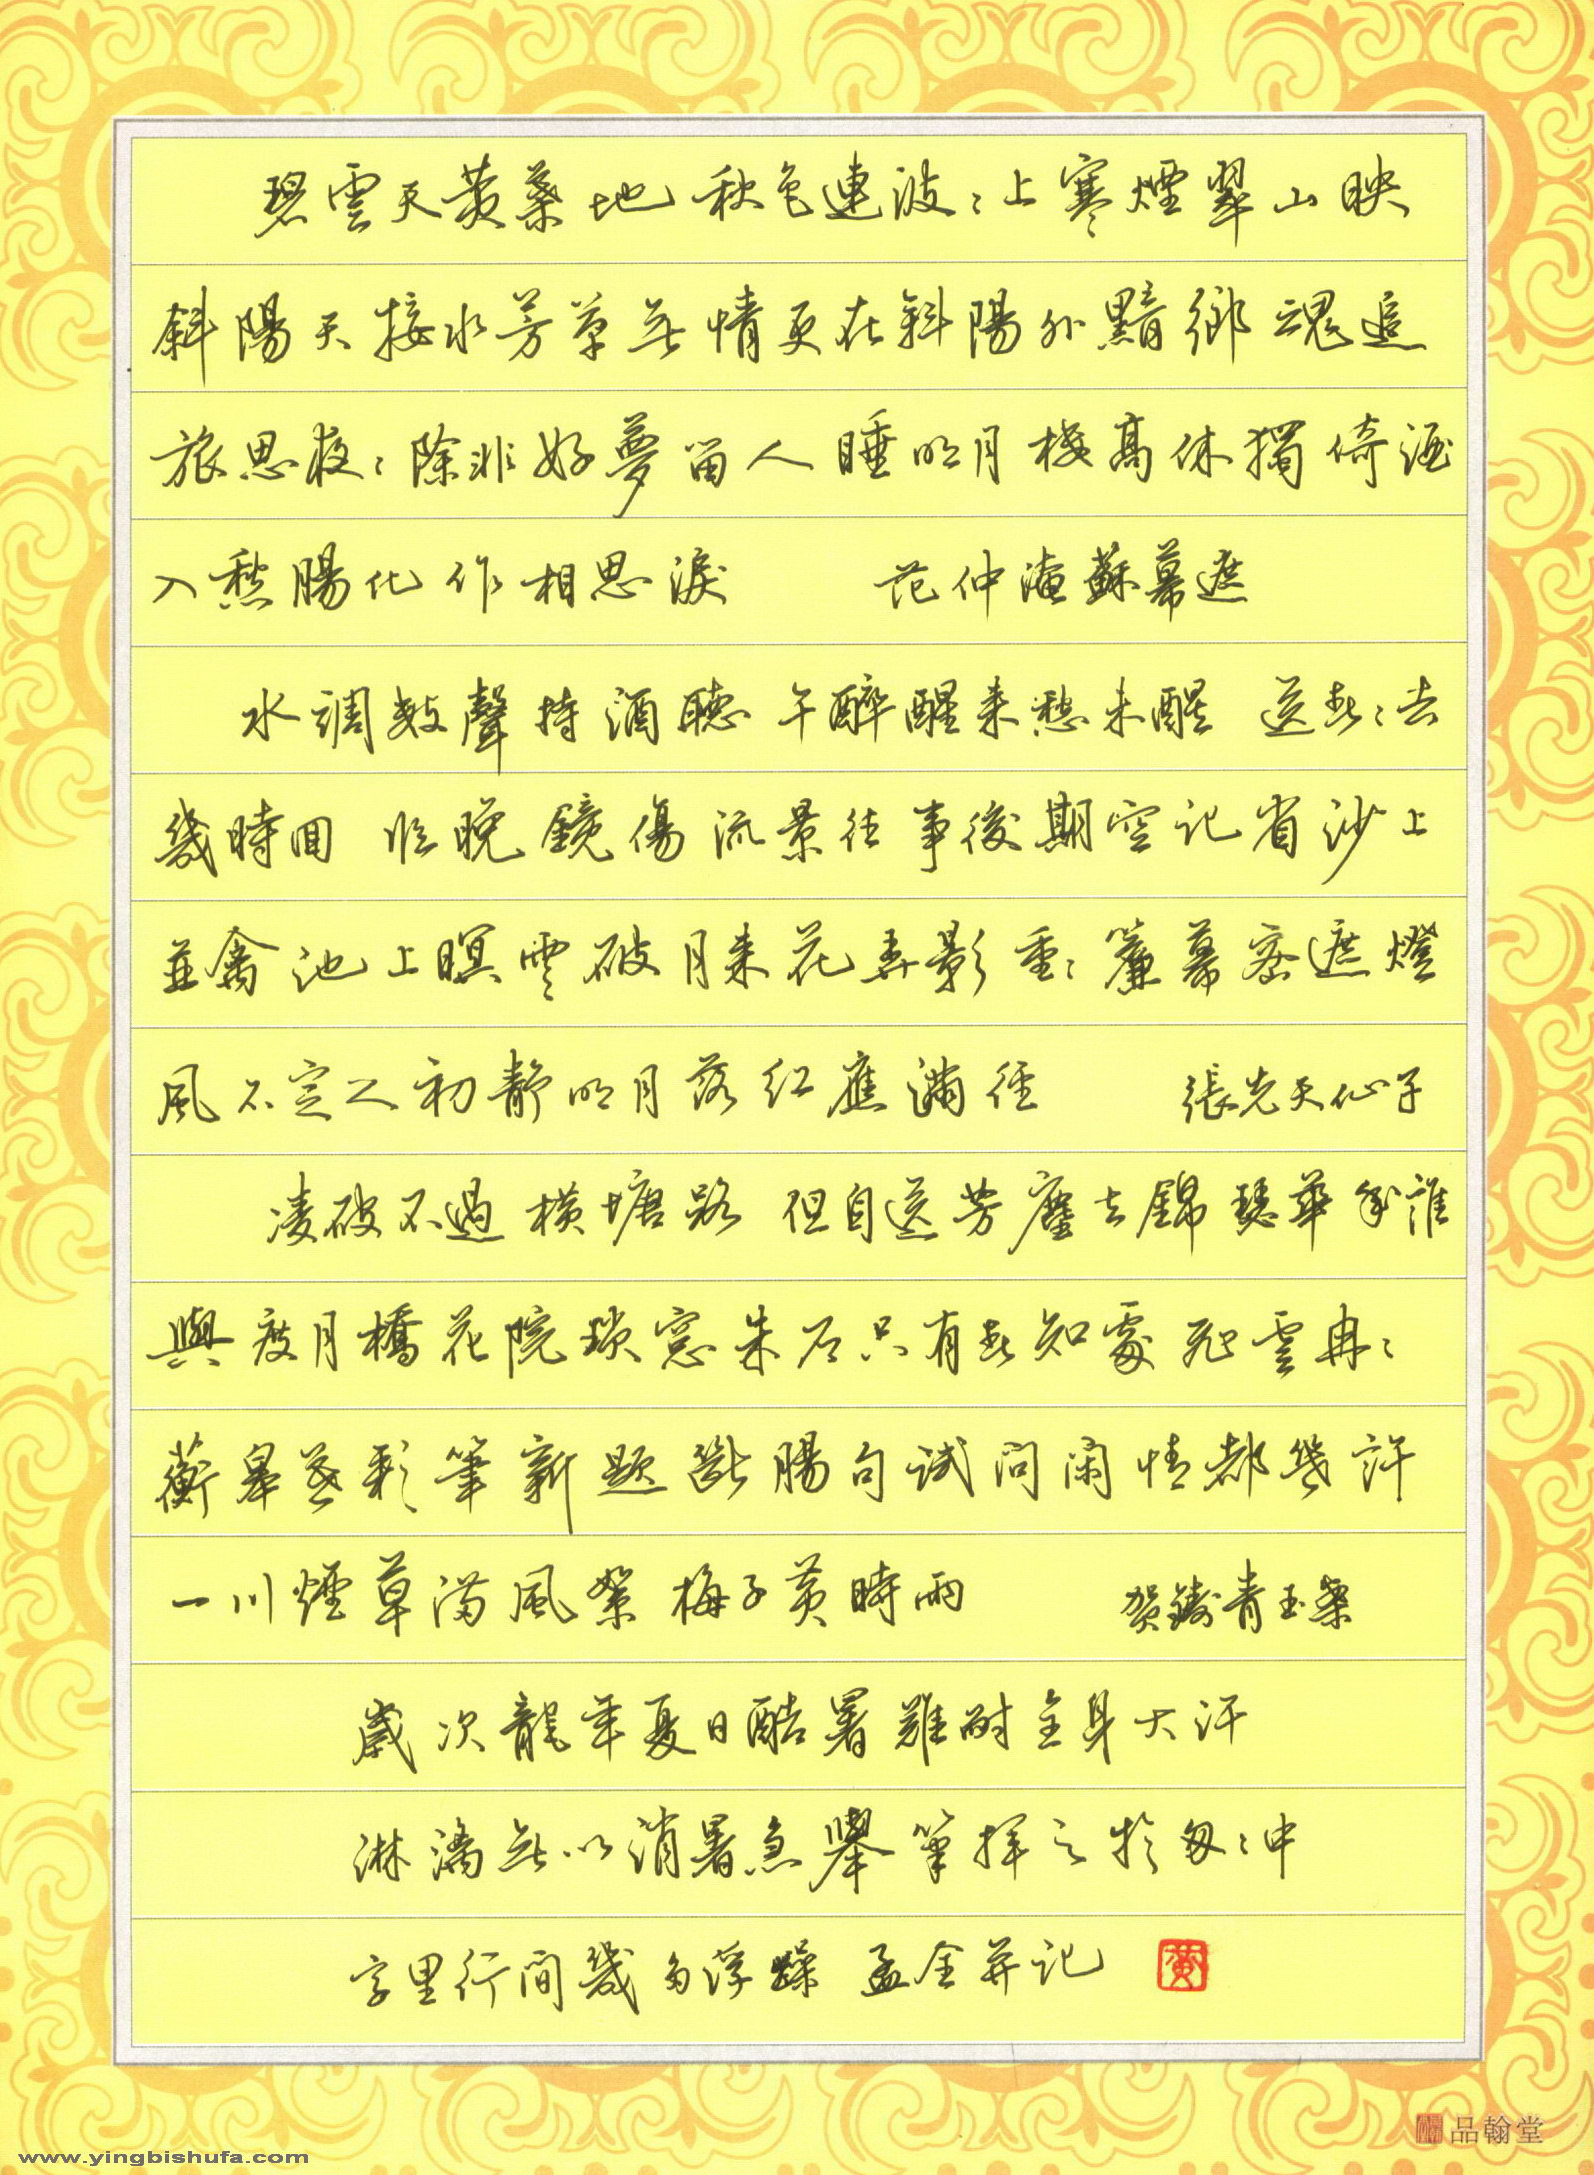 碧雲天黄葉地秋色連波〻上寒煙翠山映
斜陽天接水芳草無情更在斜陽外黯鄉魂追
旅思夜〻除非好夢留人睡明月樓高休獨倚酒
入愁腸化作相思淚 范仲淹蘇幕遮
水調數聲持酒聽午醉醒来愁未醒 送春〻去
幾時回 臨晚鏡傷流景往事後期空記省沙上
並禽池上暝雲破月来花弄影重〻簾幕密遮燈
風不定人初静明月落红應滿徑 張先天仙子
凌破不過横塘路 但目送芳塵去錦瑟華年誰
與度月橋花院瑣窓朱户只有春知處飛雲冉〻
蘅皋暮彩筆新題斷腸句试问闲情都幾許
一川煙草满風絮梅子黄時雨 贺鑄青玉案
歲次龍年夏日酷暑難耐全身大汗
淋漓無以消暑急舉筆揮之於匆〻中
字里行間幾多浮躁 孟金并记
黄
品翰堂
www.yingbishufa.com